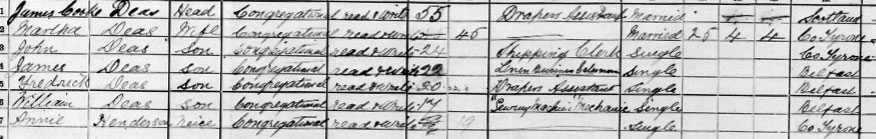 1 James Cooke Deas Head Congregational read & write 55 Drapers Assistant Married Scotland
2 Martha Deas Wife Congregational read & write 45 Married 25 4 4 Co Tyrone
3 John Deas Son Congregational read & write 24 Shipping Clerk Single Co Tyrone
4 James Deas Son Congregational read & write 22 Linen Business Salesman Single Belfast
5 Fredrick Deas Son Congregational read & write 20 Drapers Assistant Single Belfast
6 William Deas Son Congregational read & write 17 "Sewing Machine" Mechanic Single Belfast
7 Annie Henderson Neice Congregational read & write 19 Single Co Tyrone